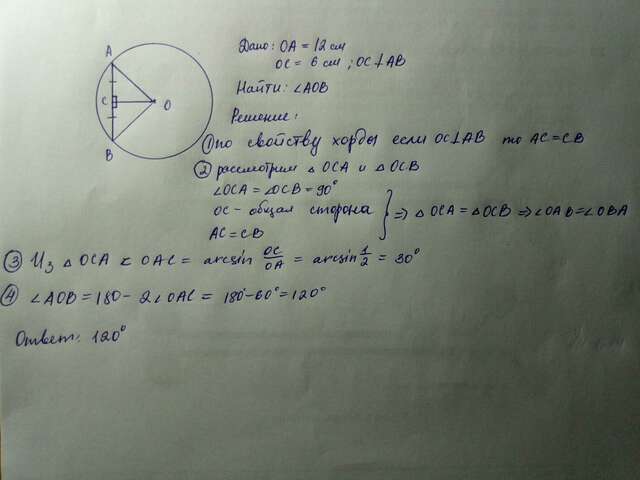 A
C
O
B
Дано: OA = 12 см
OC = 6 см ; OC⊥AB
Найти: ∠AOB
Решение:
① по свойству хорды если OC⊥AB то AC=CB
② рассмотрим △ OCA и △ OCB
∠OCA = ∠OCB = 90°
OC - общая сторона } ⇒ △ OCA = △OCB ⇒ ∠OAB = ∠OBA
AC = CB
③ Из △ OCA ∠ OAC = arcsin OC/OA = arcsin 1/2 = 30°
④ ∠AOB = 180 - 2∠OAC = 180° - 60° = 120°
Ответ: 120°